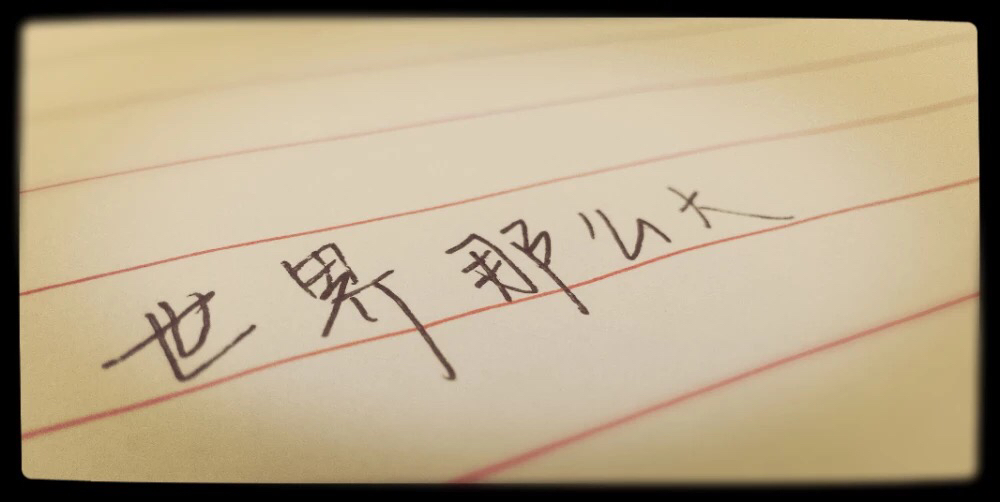 世界那么大